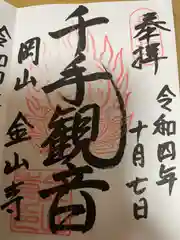 奉拝
令和四年
十月七日
千手観音
岡山
金山寺
令和四